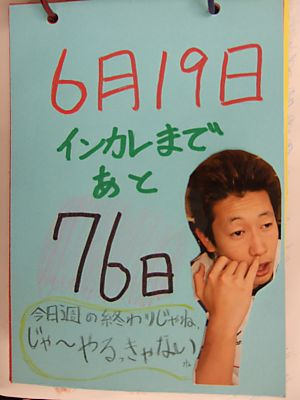 6月19日
インカレまで
あと
76日
今日週の終わりじゃね、
じゃ〜やるっきゃない